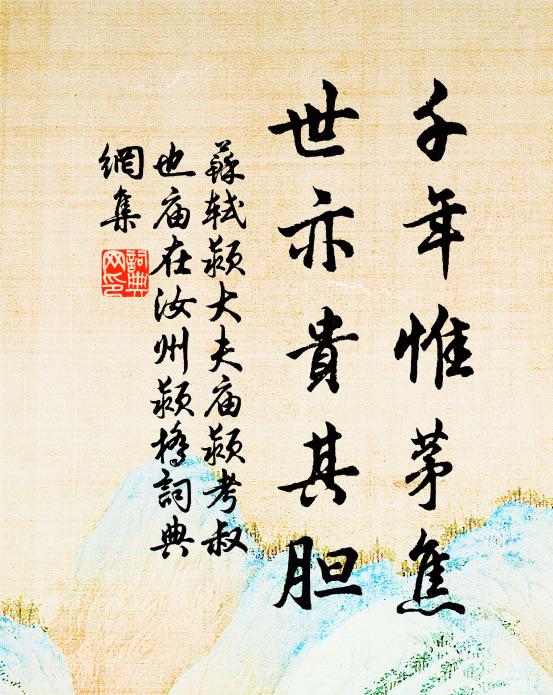 千年惟茅焦
世亦貴其胆
蘇軾颍大夫庙颍考叔
也庙在汝州颍橋詞典
網集
詞典
网印